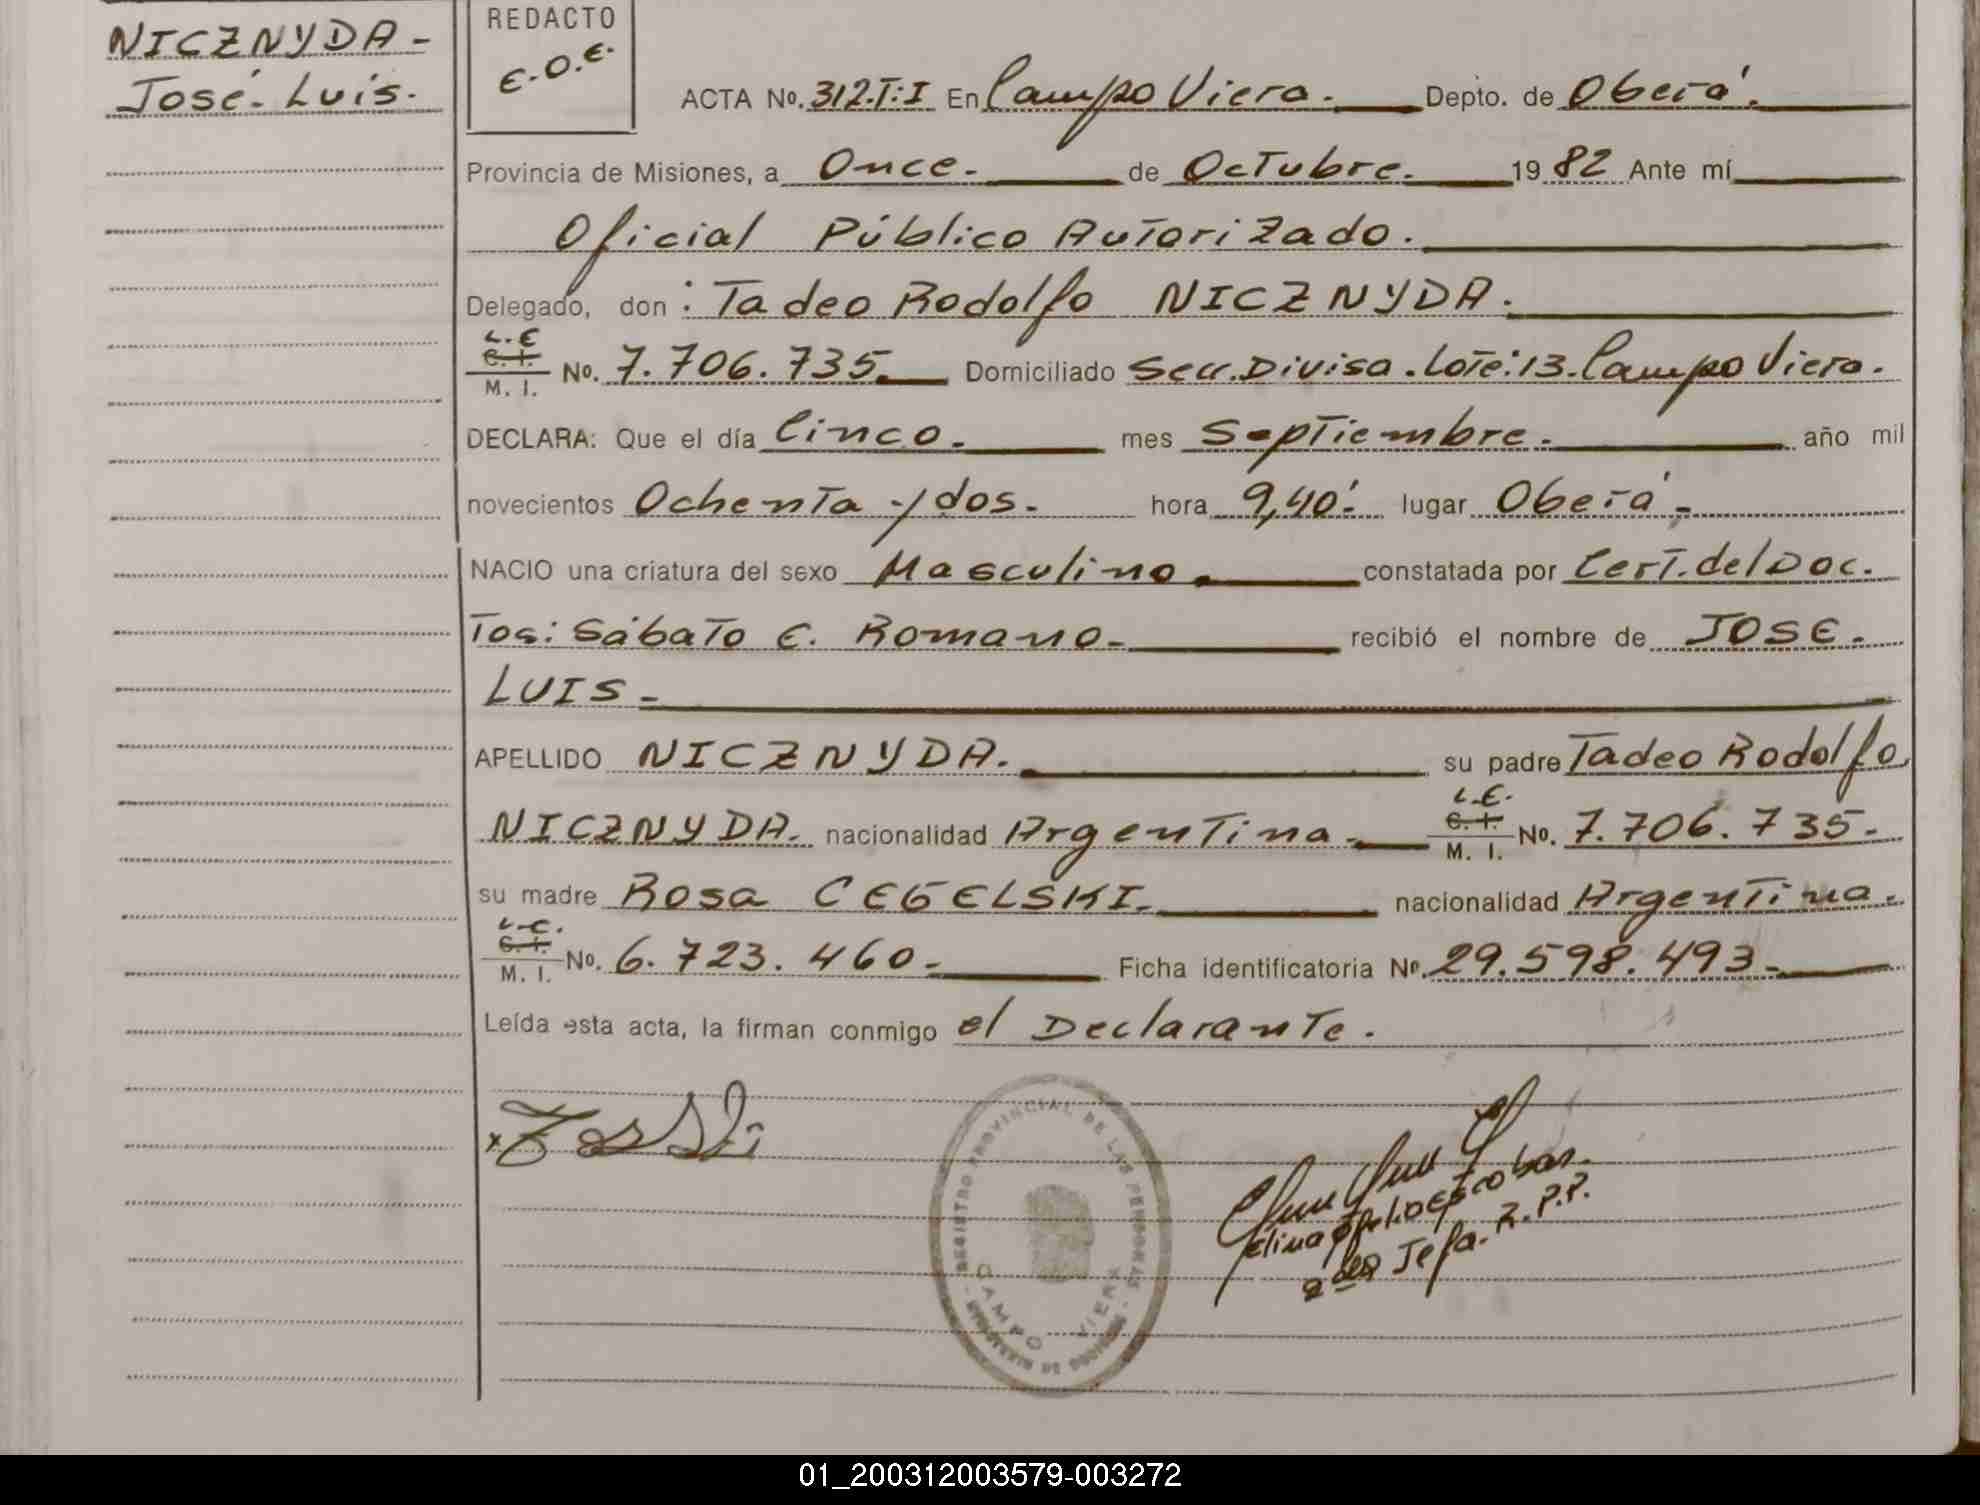 NICZNYDA-
José. Luis.
REDACTO
E.O.E.
ACTA No. 312.T:I En Campo Viera. Depto. de Oberá.
Provincia de Misiones, a Once. de Octubre. 19 82 Ante mí
Oficial Público Autorizado.
Delegado, don: Tadeo Rodolfo NICZNYDA.
L.E
C. I.
M. I. No. 7.706.735. Domiciliado Secc.Divisa.Lote:13.Campo Viera.
DECLARA: Que el día Cinco. mes Septiembre. año mil
novecientos Ochenta y dos. hora 9,40'. lugar Oberá.
NACIO una criatura del sexo Masculino. constatada por Cert.del Doc.
Tor: Sábato E. Romano. recibió el nombre de JOSE.
LUIS-
APELLIDO NICZNYDA. su padre Tadeo Rodolfo
NICZNYDA. nacionalidad Argentina. L.E. C. I. M. I. No. 7.706.735.
su madre Rosa CEGELSKI. nacionalidad Argentina.
L.C.
C. I.
M. I. No. 6.723.460. Ficha identificatoria No. 29.598.493.
Leída esta acta, la firman conmigo el Declarante.
REGISTRO PROVINCIAL DE LAS PERSONAS
CAMPO VIERA
Elina Ofelia Escobar.
Jefa. R.P.P.
01_200312003579-003272